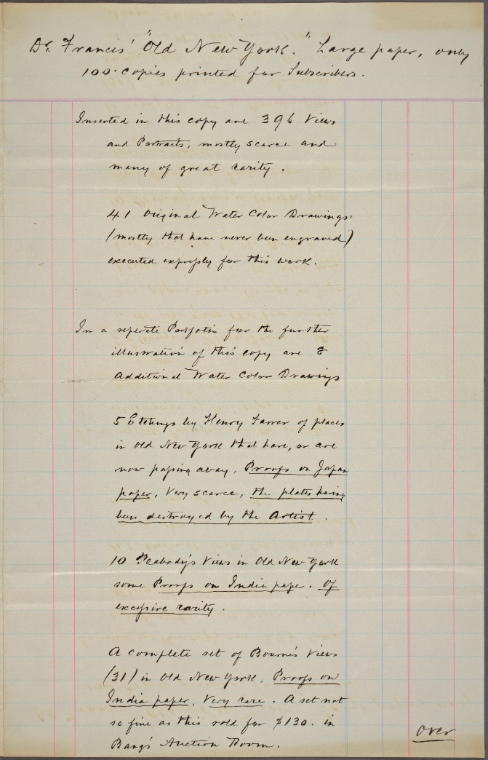 Dr. Francis' "Old New York." Large paper, only
100 copies printed for Subscribers.
Inserted in this copy are 396 Views
and Portraits, mostly scarce and
many of great rarity.
41 Original Water Color Drawings
(mostly that have never been engraved)
executed expressly for this work.
In a seperate Portfolio for the further
illustration of this copy are 8
Additional Water Color Drawings
5 Etchings by Henry Farrer of places
in old New York that have, or are
now passing away, Proofs on Japan
paper, Very scarce, the plates having
been destroyed by the Artist.
10 Peabody's Views in Old New York
some Proofs on India pape. Of
excessive rarity.
A complete set of Bourne's Views
(31) in Old New York, Proofs on
India paper, Very rare. A set not
so fine as this sold for $130. in
Bang's Auction Room.
Over